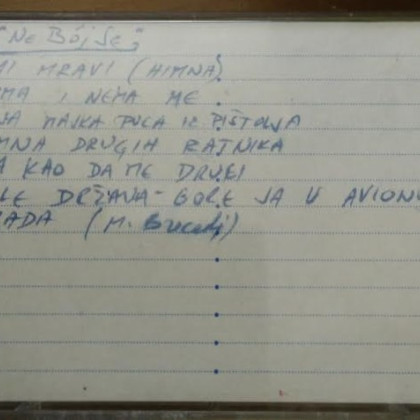 "NE BÓJ SE"
MI MRAVI (HIMNA)
MA I NEMA ME
MAJKA PUCA IZ PIŠTOLJA
MNA DRUGIH RATNIKA
A KAO DA ME DRUGI
LE DRŽAVA - GORE JA U AVIONU
ADA (M.